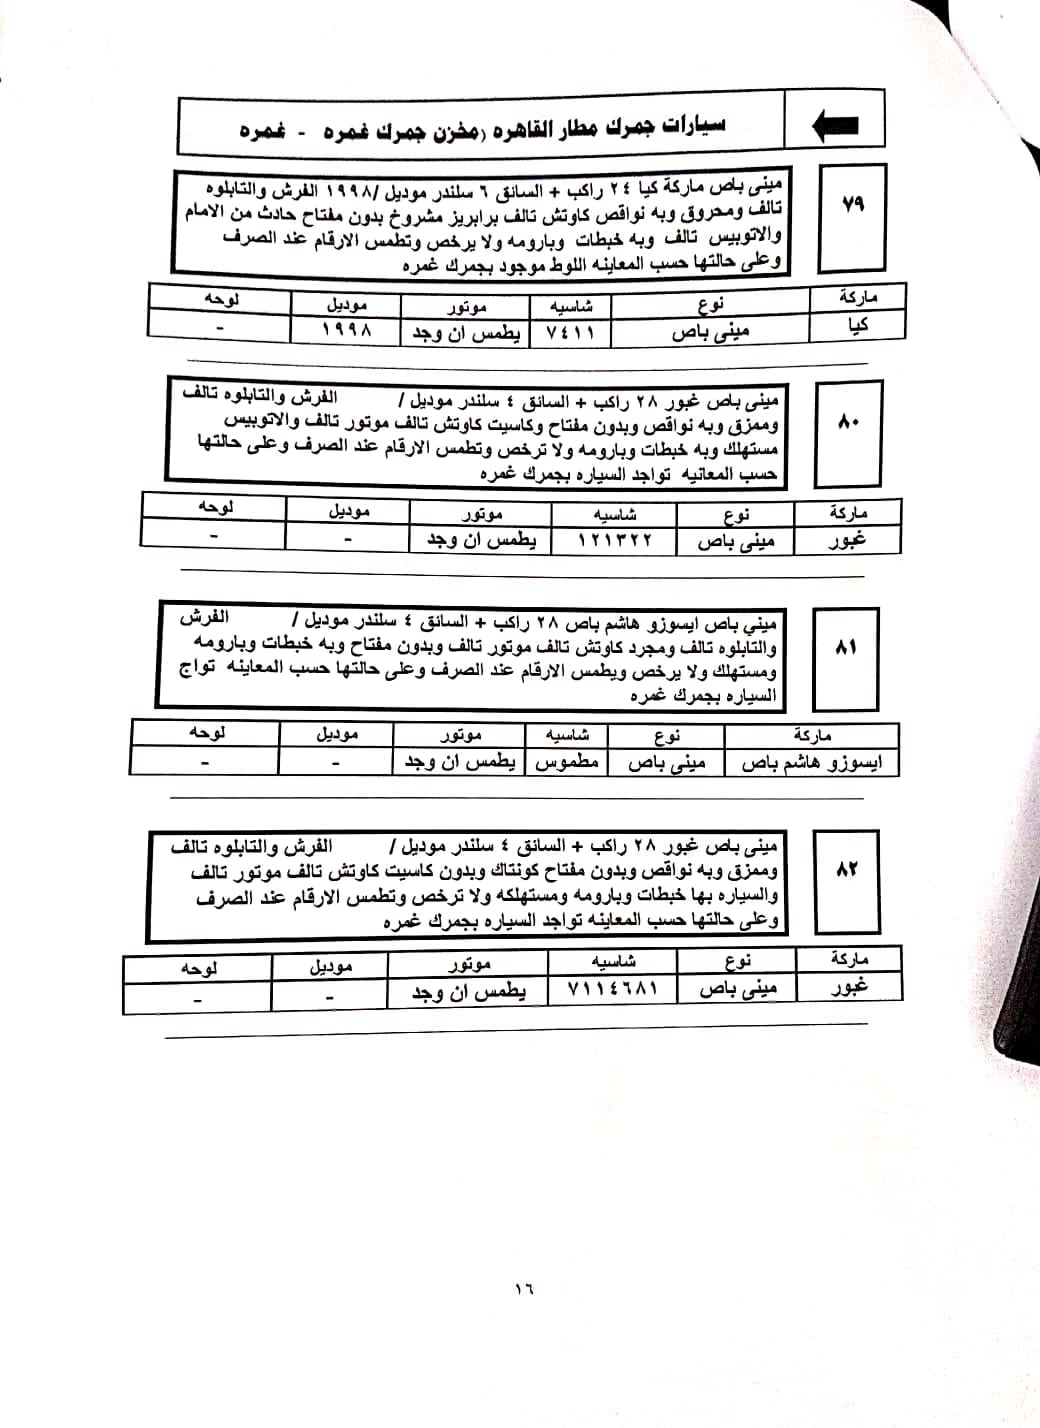 سيارات جمرك مطار القاهره (مخزن جمرك غمره - غمره
٧٩
مينى باص ماركة كيا ٢٤ راكب + السائق ٦ سلندر موديل /١٩٩٨ الفرش والتابلوه
تالف ومحروق وبه نواقص كاوتش تالف برابريز مشروخ بدون مفتاح حادث من الامام
والاتوبيس تالف وبه خبطات وبارومه ولا يرخص وتطمس الارقام عند الصرف
وعلى حالتها حسب المعاينه اللوط موجود بجمرك غمره
ماركة نوع شاسيه موتور موديل لوحه
كيا مينى باص ٧٤١١ يطمس ان وجد ١٩٩٨ -
٨٠
مينى باص غبور ٢٨ راكب + السائق ٤ سلندر موديل / الفرش والتابلوه تالف
وممزق وبه نواقص وبدون مفتاح وكاسيت كاوتش تالف موتور تالف والاتوبيس
مستهلك وبه خبطات وبارومه ولا ترخص وتطمس الارقام عند الصرف وعلى حالتها
حسب المعانيه تواجد السياره بجمرك غمره
ماركة نوع شاسيه موتور موديل لوحه
غبور مينى باص ١٢١٣٢٢ يطمس ان وجد - -
٨١
ميني باص ايسوزو هاشم باص ٢٨ راكب + السائق ٤ سلندر موديل / الفرش
والتابلوه تالف ومجرد كاوتش تالف موتور تالف وبدون مفتاح وبه خبطات وبارومه
ومستهلك ولا يرخص ويطمس الارقام عند الصرف وعلى حالتها حسب المعاينه تواج
السياره بجمرك غمره
ماركة نوع شاسيه موتور موديل لوحه
ايسوزو هاشم باص مينى باص مطموس يطمس ان وجد - -
٨٢
مينى باص غبور ٢٨ راكب + السائق ٤ سلندر موديل / الفرش والتابلوه تالف
وممزق وبه نواقص وبدون مفتاح كونتاك وبدون كاسيت كاوتش تالف موتور تالف
والسياره بها خبطات وبارومه ومستهلكه ولا ترخص وتطمس الارقام عند الصرف
وعلى حالتها حسب المعاينه تواجد السياره بجمرك غمره
ماركة نوع شاسيه موتور موديل لوحه
غبور مينى باص ٧١١٤٦٨١ يطمس ان وجد - -
١٦